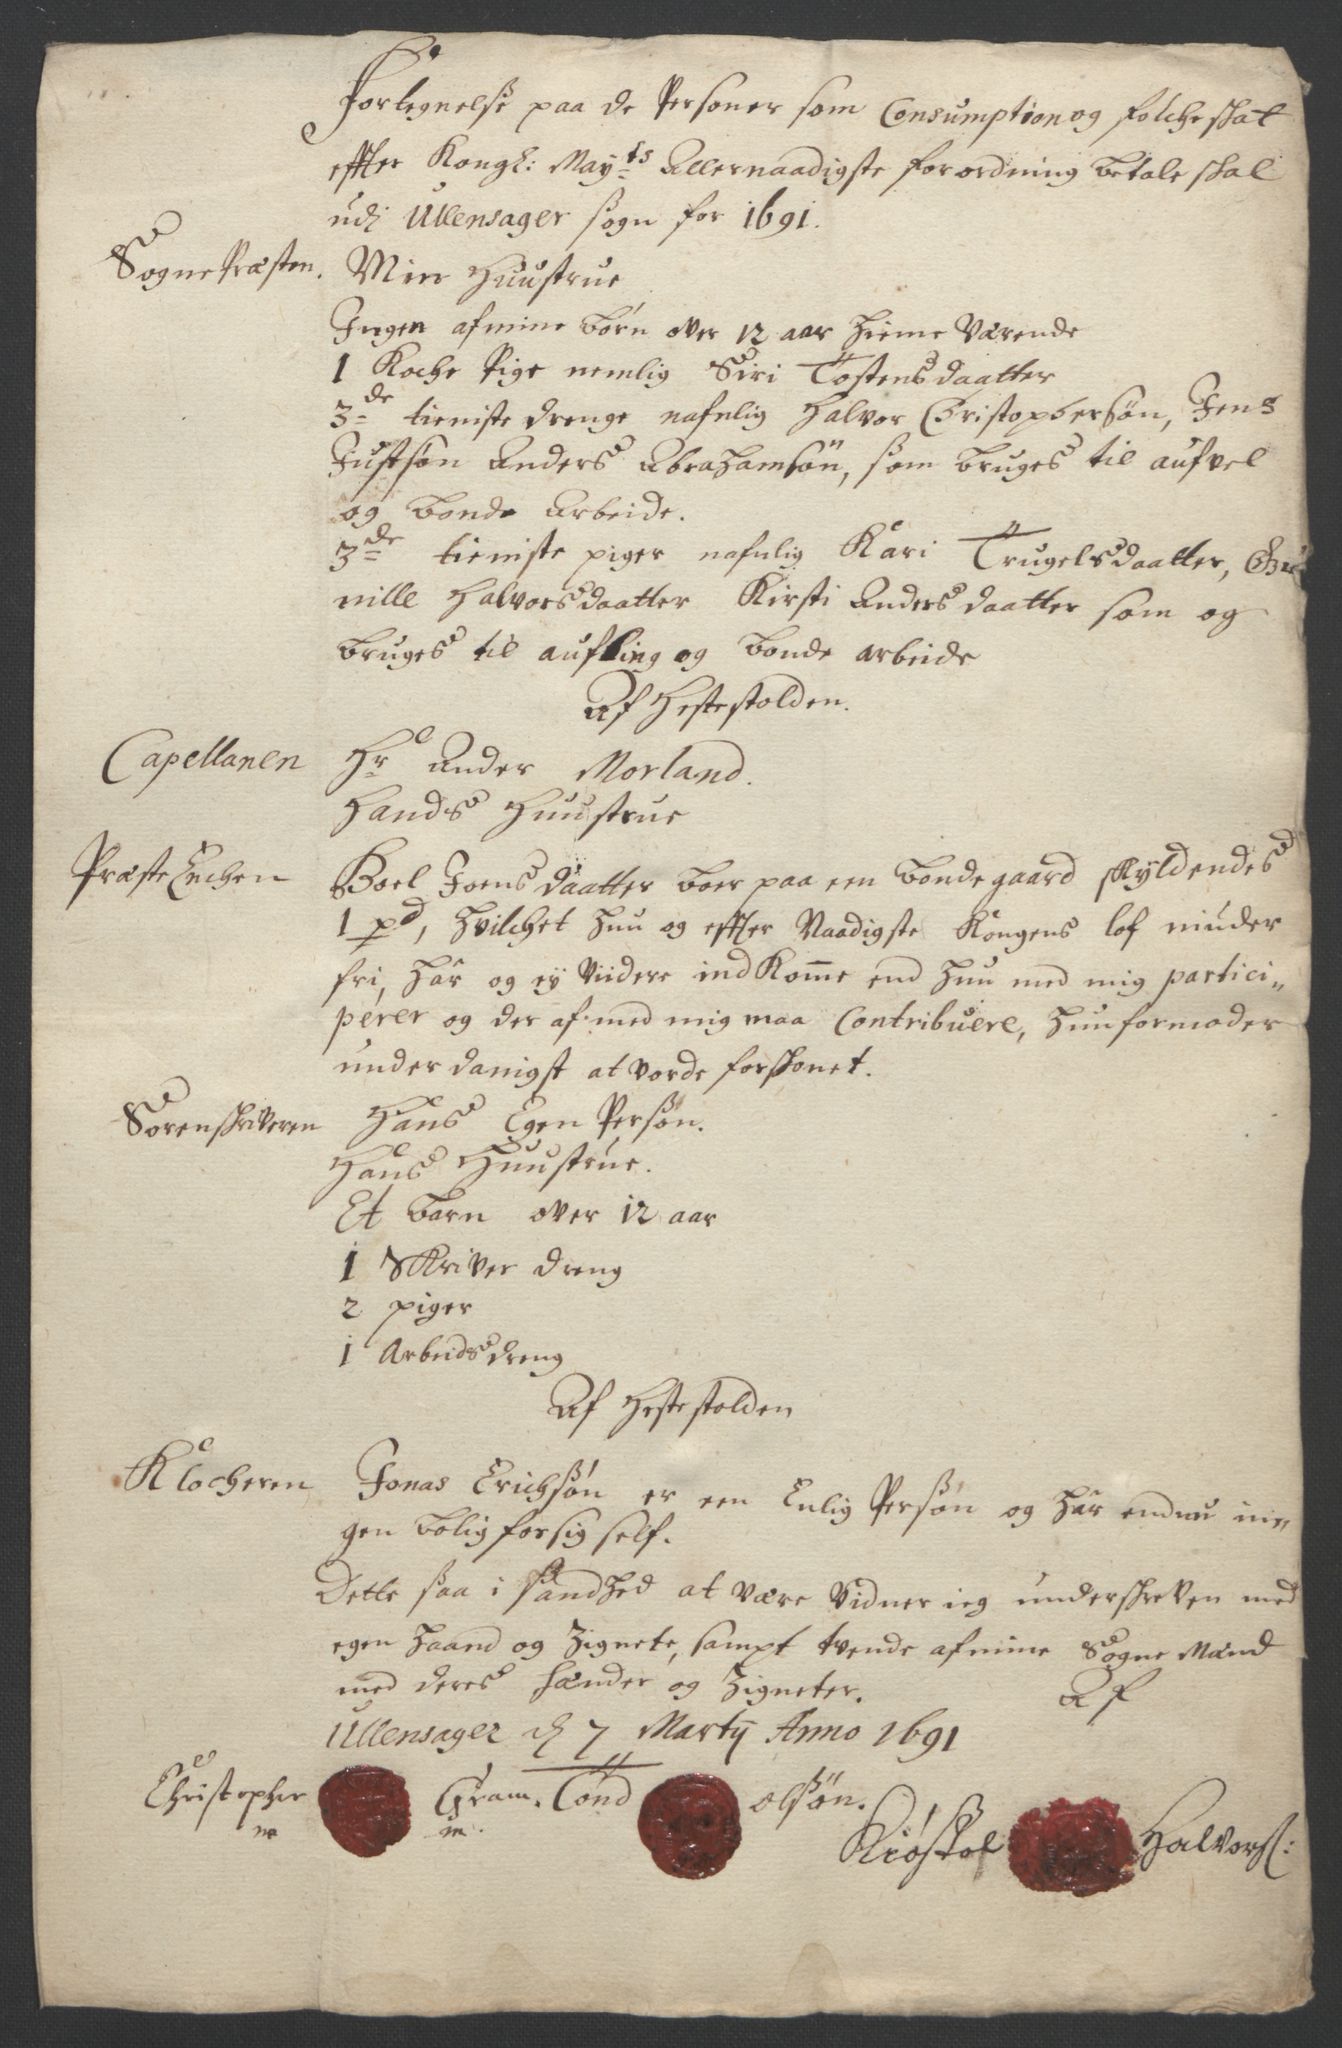 Fortegnelse paa de Personer som Consumption og folche skat
effter Kongl: May:ts Allernaadigste forordning betale skal
udj Ullensager sogn for 1691.
SognePræsten. Min Huustrue
Ingen af mine børn over 12 aar hieme værende
1 Koche Pige nemlig Siri Tostensdaatter
3de tieniste drenge nafnlig Halvor Christophersøn, Jens
Justsøn Anders Abrahamsøn, som bruges til aufvel
og bonde Arbeide.
3de tieniste piger nafnlig Kari Trugelsdaatter, Gu
nille Halvorsdaatter Kirsti Andersdaatter som og
bruges til aufling og bonde arbeide
Af Hestestolden.
Capellanen Hr Ander Morland.
Hands Huustrue
Præste Enchen Boel Joensdaatter boer paa een bondegaard skyldendes
1 pd, hvilchet hun og effter Naadigste Kongens lof niuder
fri, har og ej viidere indKomme end hun med mig partici„
perer og der af med mig maa Contribuere, hun formoder
underdanigst at vorde forskonet.
Sorenskriveren Hans Egen Persøn.
Hans Huustrue.
Et barn over 12 aar
1 Skriver dreng
2 piger
1 Arbeidsdreng
Af Hestestolden
Klocheren Jonas Erichsøn er een Enlig Persøn og har endnu in„
gen bolig for sig self.
Dette saa i sandhed at være vidner ieg underskreven med
egen haand og Zignete, sampt tvende af mine Sogne Mænd
med deres hænder og Zigneter. Af
Ullensager d 7 Martij Anno 1691
Christopher Gram. Tond olssøn.
mp m.
Kiøstol Halvors: